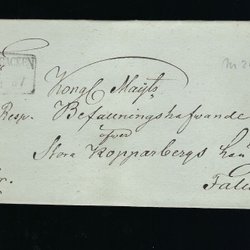 m 20
Kongl Maijts
Resp. Befallningshafwande
öfwer
Stora Kopparbergs Län
Falu